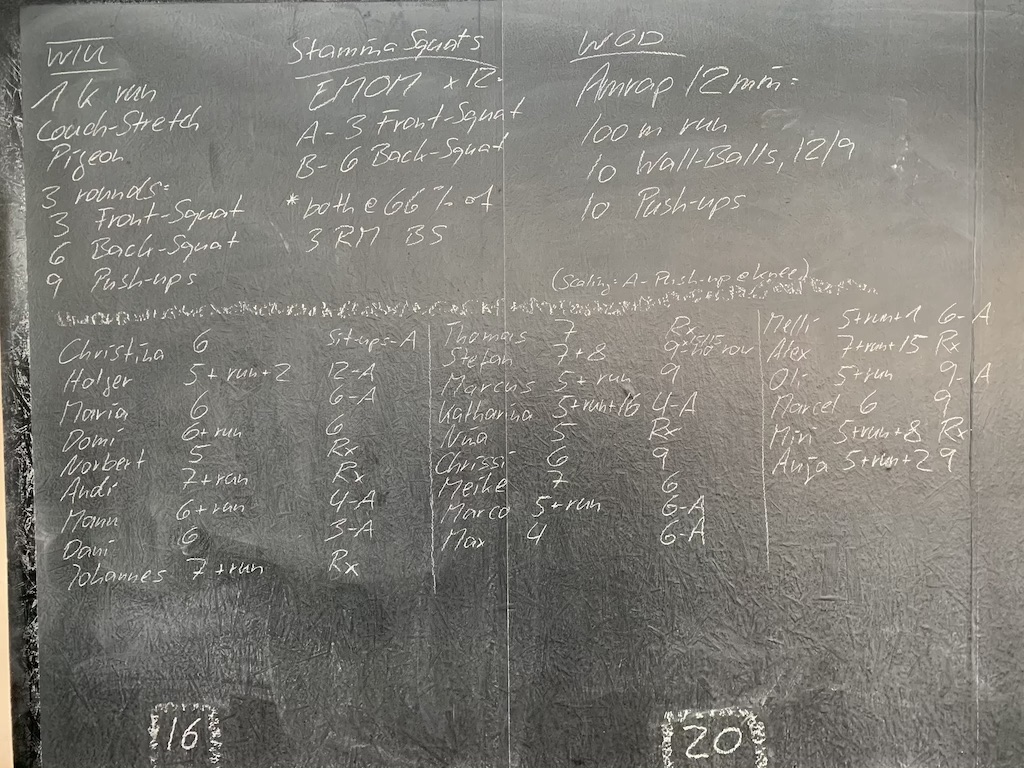 WU
1 k run
Couch-Stretch
Pigeon
3 rounds:
3 Front-Squat
6 Back-Squat
9 Push-ups
Stamina Squats
EMOM x 12
A - 3 Front-Squat
B - 6 Back-Squat
* both @ 66 % of
3 RM BS
WOD
Amrap 12 min:
100 m run
10 Wall-Balls, 12/9
10 Push-ups
(Scaling: A - Push-up @ knee)
Christina 6 Sit-ups-A
Holger 5+run+2 12-A
Maria 6 6-A
Domi 6+run 6
Norbert 5 Rx
Andi 7+run Rx
Manu 6+run 4-A
Dani 6 3-A
Johannes 7+run Rx
Thomas 7 Rx
Stefan 7+8 9-no row
Marcus 5+run 9
Katharina 5+run+16 4-A
Nina 5 Rx
Chrissi 6 9
Meike 7 6
Marco 5+run 6-A
Max 4 6-A
Melli 5+run+1 6-A
Alex 7+run+15 Rx
Oli 5+run 9-A
Marcel 6 9
Miri 5+run+8 Rx
Anja 5+run+2 9
16
20